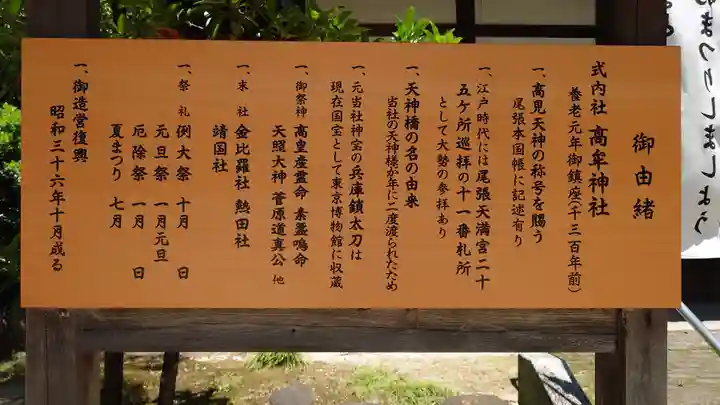 御由緒
式内社 高牟神社
養老元年御鎮座(千三百年前)
一、高見天神の称号を賜う
尾張本国帳に記述有り
一、江戸時代には尾張天満宮二十
五ケ所巡拝の十一番札所
として大勢の参拝あり
一、天神橋の名の由来
当社の天神様が年に二度渡られたため
一、元当社神宝の兵庫鎖太刀は
現在国宝として東京博物館に収蔵
一、御祭神 高皇産霊命 素盞嗚命
天照大神 菅原道真公 他
一、末社 金比羅社 熱田社
靖国社
一、祭礼 例大祭 十月 日
元旦祭 一月元旦
厄除祭 一月 日
夏まつり 七月
一、御造営復興
昭和三十六年十月成る
おまつりしましょう